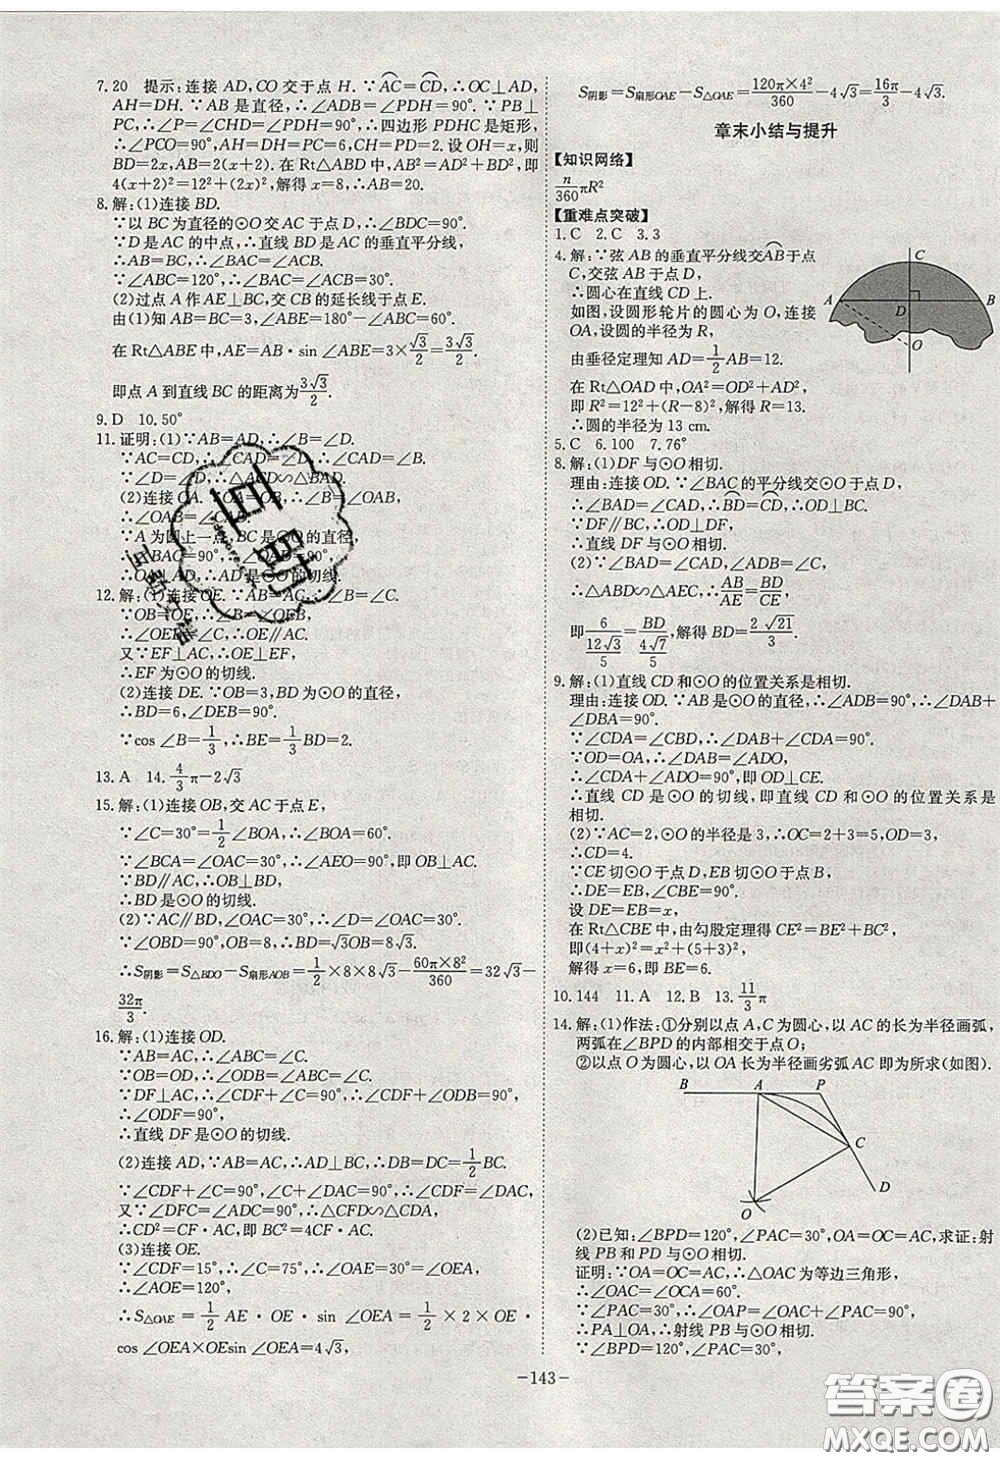 7. 20　提示:连接 AD,CO 交于点 H. ∵AC=CD,∴OC⊥AD,
AH=DH. ∵AB 是直径,∴∠ADB=∠PDH=90°. ∵PB⊥
PC,∴∠P=∠CHD=∠PDH=90°,∴四边形 PDHC 是矩形,
∴∠PCO=90°,AH=DH=PC=6,CH=PD=2. 设 OH=x,则
BD=2x,AB=2(x+2). 在 Rt△ABD 中,AB²=AD²+BD²,即
4(x+2)²=12²+(2x)²,解得 x=8,∴AB=20.
8. 解:(1)连接 BD.
∵以 BC 为直径的⊙O 交 AC 于点 D,∴∠BDC=90°.
∵D 是 AC 的中点,∴直线 BD 是 AC 的垂直平分线,
∴AB=BC,∴∠BAC=∠BCA.
∵∠ABC=120°,∴∠BAC=∠BCA=30°.
(2)过点 A 作 AE⊥BC,交 CB 的延长线于点 E.
由(1)知 AB=BC=3,∠ABE=180°-∠ABC=60°.
在 Rt△ABE 中,AE=AB·sin∠ABE=3×√3/2=3√3/2,
即点 A 到直线 BC 的距离为3√3/2.
9. D　10. 50°
11. 证明:(1)∵AB=AD,∴∠B=∠D.
∵AC=CD,∴∠CAD=∠D.
∵∠D=∠D,∴△ACD∽△BAD.
(2)连接 OA. ∵OA=OB,∴∠B=∠OAB,
∴∠OAB=∠CAD.
∵A 为圆上一点,BC是⊙O 的直径,
∴∠BAC=90°,∴∠OAD=90°,
∴OA⊥AD,∴AD 是⊙O 的切线.
12. 解:(1)连接 OE. ∵AB=AC,∴∠B=∠C.
∵OB=OE,∴∠B=∠OEB,
∴∠OEB=∠C,∴OE∥AC.
又∵EF⊥AC,∴OE⊥EF.
∴EF 为⊙O 的切线.
(2)连接 DE. ∵OB=3,BD 为⊙O 的直径,
∴BD=6,∠DEB=90°.
∵cos∠B=1/3,∴BE=1/3BD=2.
13. A　14. 4/3π-2√3
15. 解:(1)连接 OB,交 AC 于点 E,
∵∠C=30°=1/2∠BOA,∴∠BOA=60°.
∵∠BCA=∠OAC=30°,∴∠AEO=90°,即 OB⊥AC.
∵BD∥AC,∴OB⊥BD,
∴BD 是⊙O 的切线.
(2)∵AC∥BD,∠OAC=30°,∴∠D=∠OAC=30°.
∵∠OBD=90°,OB=8,∴BD=√3OB=8√3,
∴S阴影=S△BDO-S扇形AOB=1/2×8×8√3-60π×8²/360=32√3-
32π/3.
16. 解:(1)连接 OD.
∵AB=AC,∴∠ABC=∠C.
∵OB=OD,∴∠ABC=∠ODB,∴∠ODB=∠C.
∵DF⊥AC,∴∠CDF+∠C=90°,∴∠CDF+∠ODB=90°,
∴∠ODF=90°,
∴直线 DF 是⊙O 的切线.
(2)连接 AD,∵AB=AC,∴AD⊥BC,∴DB=DC=1/2BC.
∵∠CDF+∠C=90°,∠C+∠DAC=90°,∴∠CDF=∠DAC,
又∵∠DFC=∠ADC=90°,∴△CFD∽△CDA,
∴CD²=CF·AC,即 BC²=4CF·AC.
(3)连接 OE.
∵∠CDF=15°,∴∠C=75°,∴∠OAE=30°=∠OEA,
∴∠AOE=120°,
∴S△OAE=1/2 AE·OE·sin∠OEA=1/2×2×OE·
cos∠OEA×OEsin∠OEA=4√3,
S阴影=S扇形OAE-S△OAE=120π×4²/360-4√3=16π/3-4√3.
章末小结与提升
【知识网络】
n/360πR²
【重难点突破】
1. C　2. C　3. 3
4. 解:∵弦 AB 的垂直平分线交AB于点
C,交弦 AB 于点 D,
∴圆心在直线 CD 上.
如图,设圆形轮片的圆心为 O,连接
OA,设圆的半径为 R,
由垂径定理知 AD=1/2AB=12.
在 Rt△OAD 中,OA²=OD²+AD²,
即 R²=12²+(R-8)²,解得 R=13.
∴圆的半径为 13 cm.
C
A
B
D
O
5. C　6. 100　7. 76°
8. 解:(1)DF 与⊙O 相切.
理由:连接 OD. ∵∠BAC 的平分线交⊙O 于点 D,
∴∠BAD=∠CAD,∴BD=CD,∴OD⊥BC.
∵DF∥BC,∴OD⊥DF,
∴直线 DF 与⊙O 相切.
(2)∵∠BAD=∠CAD,∠ADB=∠C,
∴△ABD∽△AEC,∴AB/AE=BD/CE,
即6/(12√3/5)=BD/(4√7/5),解得 BD=2√21/3.
9. 解:(1)直线 CD 和⊙O 的位置关系是相切.
理由:连接 OD. ∵AB 是⊙O 的直径,∴∠ADB=90°,∴∠DAB+
∠DBA=90°.
∵∠CDA=∠CBD,∴∠DAB+∠CDA=90°.
∵OD=OA,∴∠DAB=∠ADO,
∴∠CDA+∠ADO=90°,∴OD⊥CE.
∴直线 CD 是⊙O 的切线,即直线 CD 和⊙O 的位置关系是
相切.
(2)∵AC=2,⊙O 的半径是 3,∴OC=2+3=5,OD=3,
∴CD=4.
∵CE 切⊙O 于点 D,EB 切⊙O 于点 B,
∴DE=EB,∠CBE=90°.
设 DE=EB=x,
在 Rt△CBE 中,由勾股定理得 CE²=BE²+BC²,
即(4+x)²=x²+(5+3)²,
解得 x=6,即 BE=6.
10. 144　11. A　12. B　13. 11/3π
14. 解:(1)作法:①分别以点 A,C 为圆心,以 AC 的长为半径画弧,
两弧在∠BPD 的内部相交于点 O;
②以点 O 为圆心,以 OA 长为半径画劣弧 AC 即为所求(如图).
B
A
P
C
D
O
(2)已知:∠BPD=120°,∠PAC=30°,OA=OC=AC,求证:射
线 PB 和 PD 与⊙O 相切.
证明:∵OA=OC=AC,∴△OAC 为等边三角形,
∴∠OAC=∠OCA=60°.
∵∠PAC=30°,∴∠OAP=∠OAC+∠PAC=90°,
∴PA⊥OA,∴射线 PB 与⊙O 相切.
∵∠BPD=120°,∠PAC=30°,
-143-
答案圈
MXQE.COM